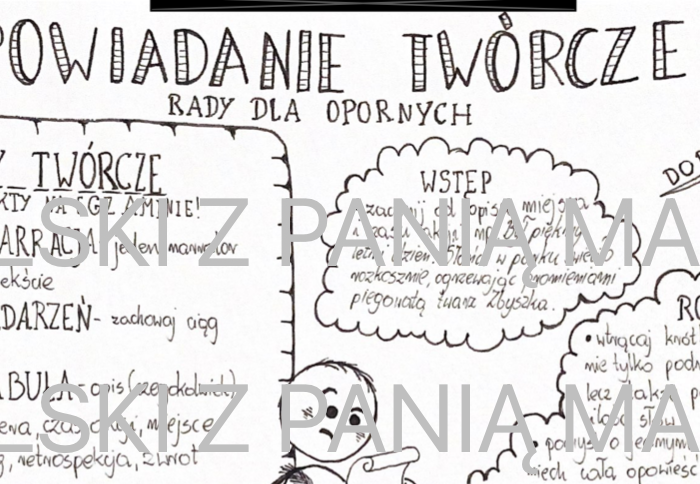 POWIADANIE TWÓRCZE
RADY DLA OPORNYCH
TWÓRCZE
NA EGZAMINIE!
ARRACJA - jeden narrator
ekście
DARZEŃ - zachowaj ciąg
BUŁA - opis (czegokolwiek)
czas akcji, miejsce
retrospekcja, zwrot
WSTĘP
• zacznij od opisu miejsca
i czasu akcji, np. Był piękny,
letni dzień. Słońce w parku świeciło
rozkosznie, ogrzewając promieniami
piegowatą twarz Zbyszka.
• wtrącaj krót
nie tylko pod
lecz także
ilość słów
• pomyśl o jednym
niech cała opowieść
LSKI Z PANIĄ MA
LSKI Z PANIĄ MA